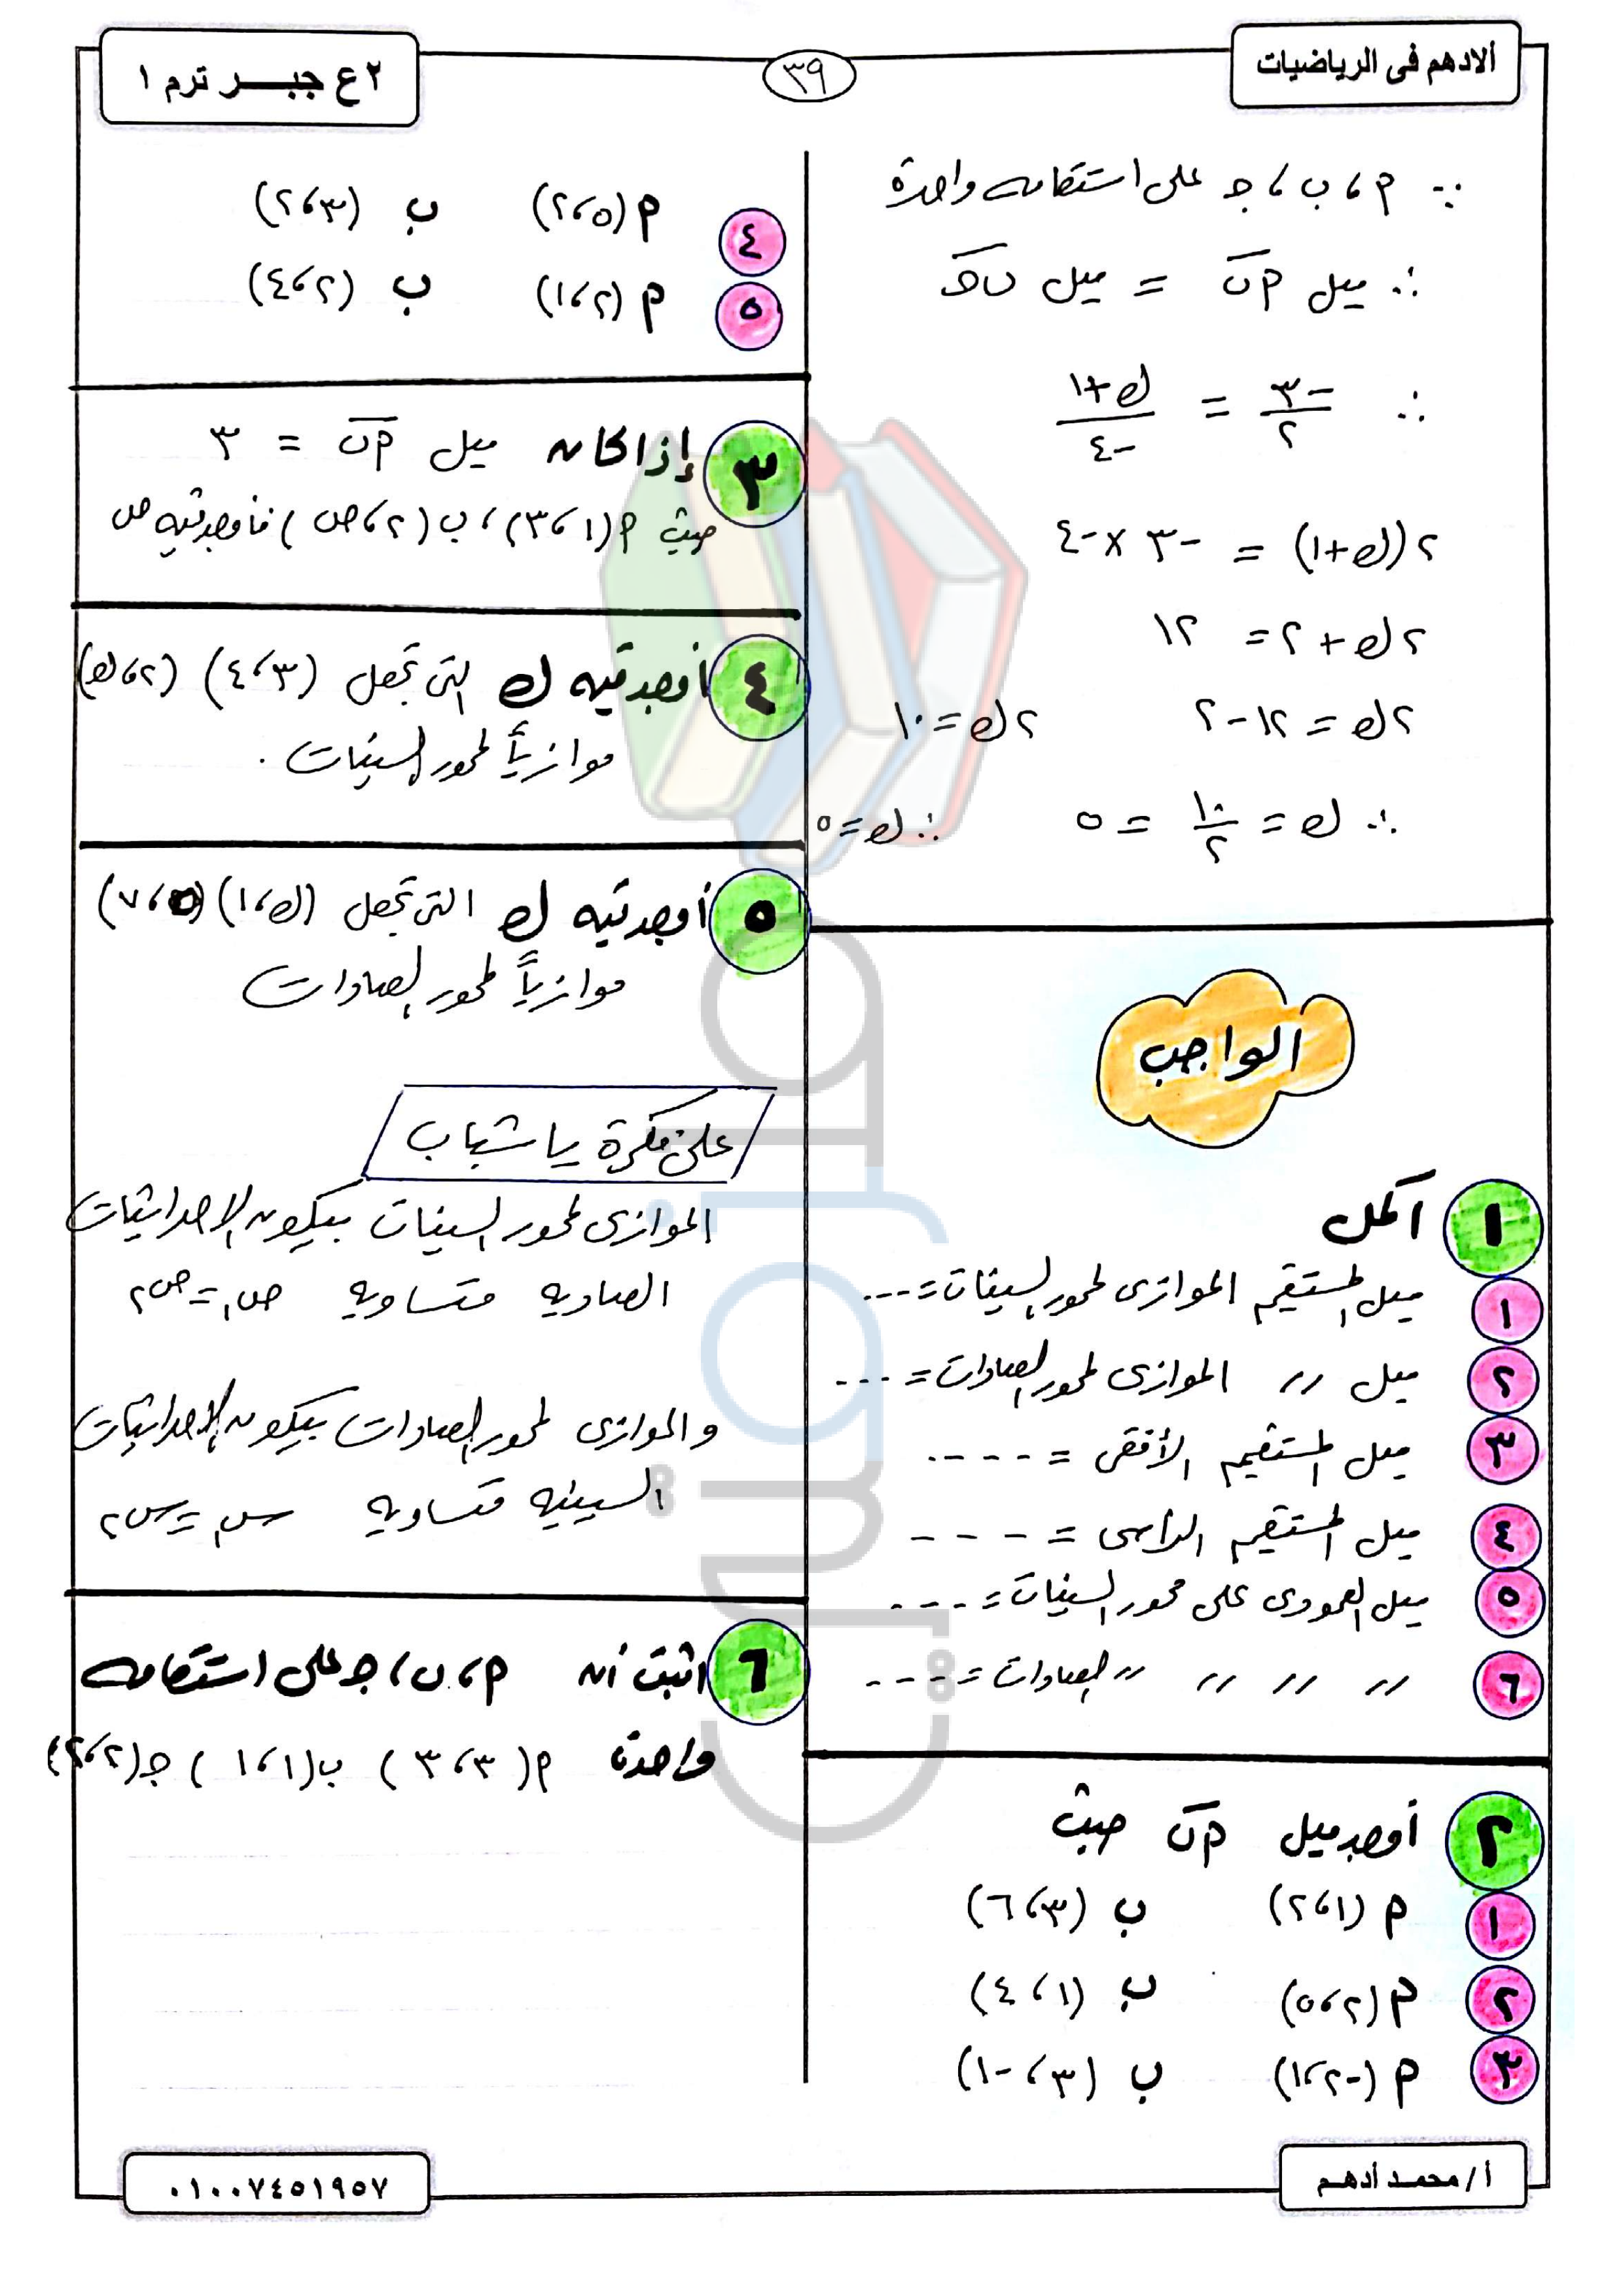 الادهم فى الرياضيات
٣٩
٢ ع جبـــر ترم ١
∵ م ، ب ، جـ على استقامه واحدة
∴ ميل م ب = ميل ب جـ
∴ -٣/٢ = (ك+١)/-٤
٢(ك+١) = -٣ × -٤
٢ك + ٢ = ١٢
٢ك = ١٢ - ٢ ٢ك = ١٠
∴ ك = ١٠/٢ = ٥ ∴ ك = ٥
الواجب
١ أكمل
١ ميل المستقيم الموازى لمحور السينات = ...
٢ ميل 〃 الموازى لمحور الصادات = ...
٣ ميل المستقيم الأفقى = ....
٤ ميل المستقيم الرأسى = ...
٥ ميل العمودى على محور السينات = ....
٦ 〃 〃 〃 〃 الصادات = ....
٢ أوجد ميل م ب حيث
١ م (١ ، ٢) ب (٣ ، ٦)
٢ م (٢ ، ٥) ب (١ ، ٤)
٣ م (-٢ ، ١) ب (٣ ، -١)
٤ م (٥ ، ٢) ب (٣ ، ٢)
٥ م (٢ ، ١) ب (٢ ، ٤)
٣ إذا كان ميل م ب = ٣
حيث م (١ ، ٣) ، ب (٢ ، ص) فأوجد قيمه ص
٤ أوجد قيمه ك التى تجعل (٣ ، ٤) (٢ ، ك)
موازياً لمحور السينات .
٥ أوجد قيمه ك التى تجعل (ك ، ١) (٥ ، ٧)
موازياً لمحور الصادات
على فكرة يا شباب
الموازى لمحور السينات بيكون الإحداثيات
الصاديه متساويه ص١ = ص٢
والموازى لمحور الصادات بيكون الإحداثيات
السينيه متساويه س١ = س٢
٦ اثبت أن م ، ب ، جـ على استقامه
واحدة م (٣ ، ٣) ب (١ ، ١) جـ (٢ ، ٢)
أ / محمـد أدهـم
٠١٠٠٧٤٥١٩٥٧